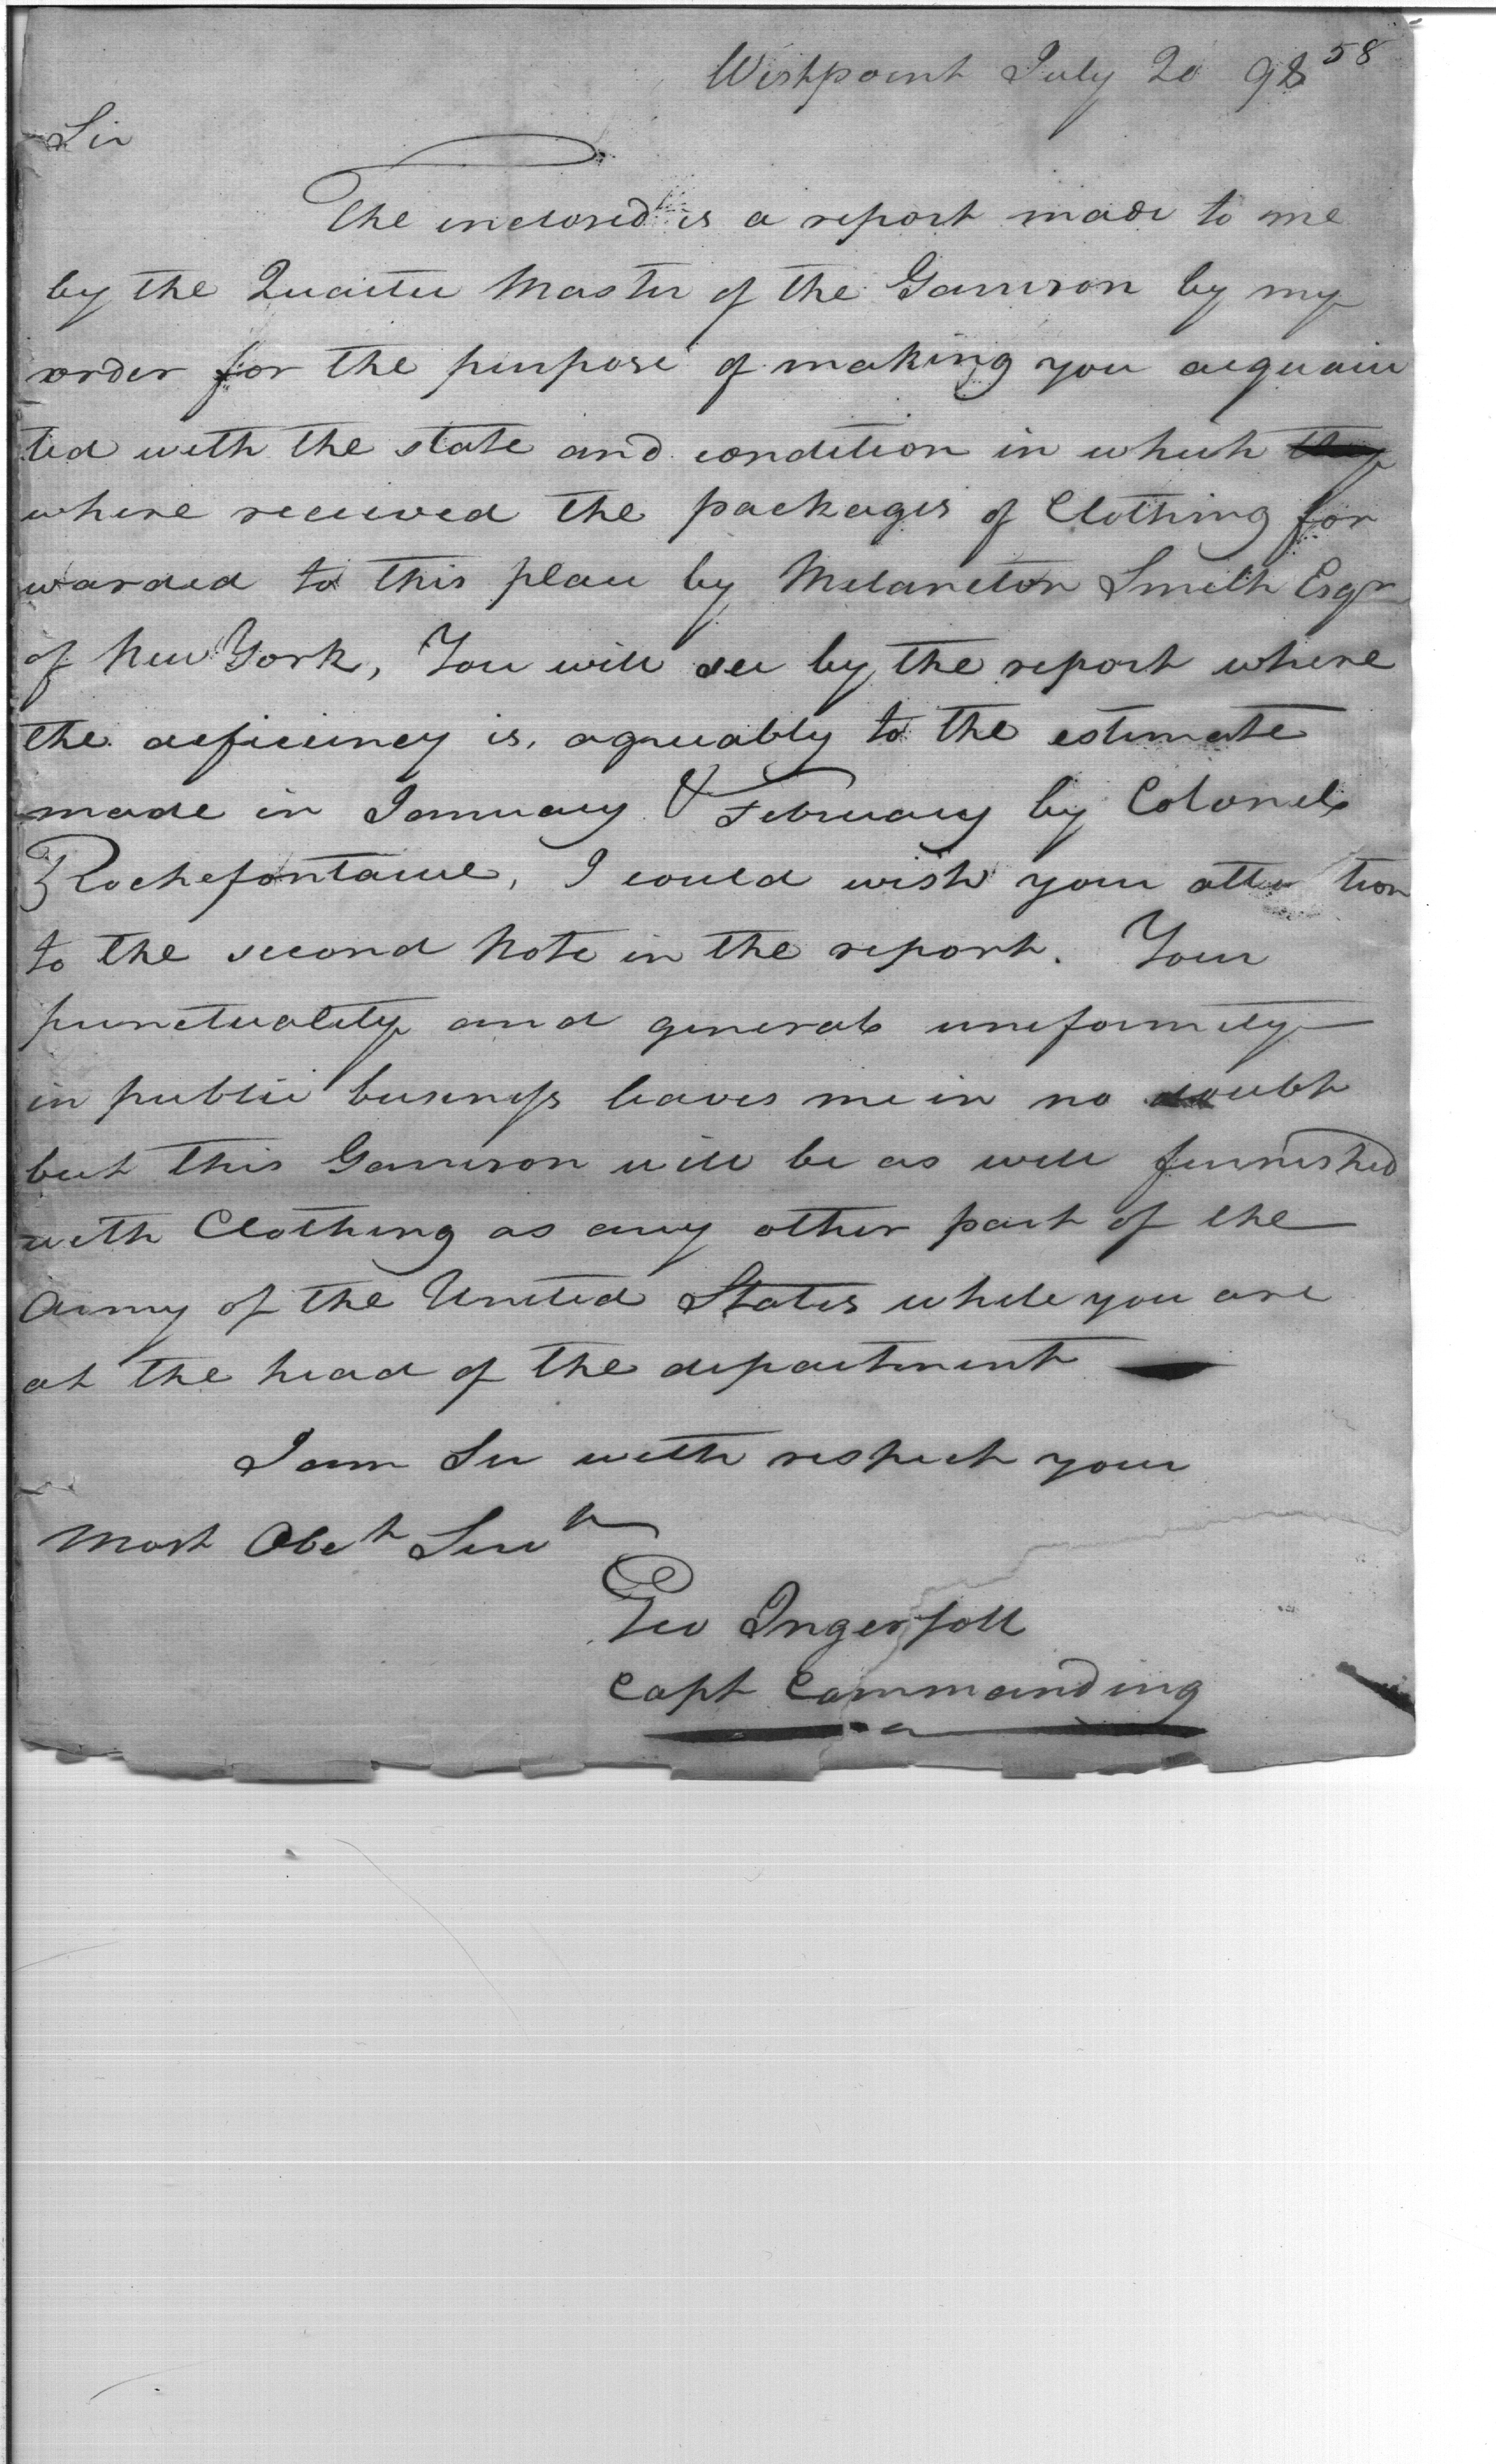 Westpoint July 20 98 58
Sir
The inclosed is a report made to me
by the Quarter Master of the Garrison by my
order for the purpose of making you acquain
ted with the state and condition in which they
where received the packages of Clothing for
warded to this place by Melancton Smith Esqr
of New York, You will see by the report where
the deficiency is, agreeably to the estimate
made in January & February by Colonel
Rochefontaine, I could wish your attention
to the second Note in the report. Your
punctuality and general uniformity
in public business leaves me in no doubt
but this Garrison will be as well furnished
with Clothing as any other part of the
Army of the United States while you are
at the head of the department
I am Sir with respect your
Most Obet Servt
Geo Ingersoll
Capt Commanding